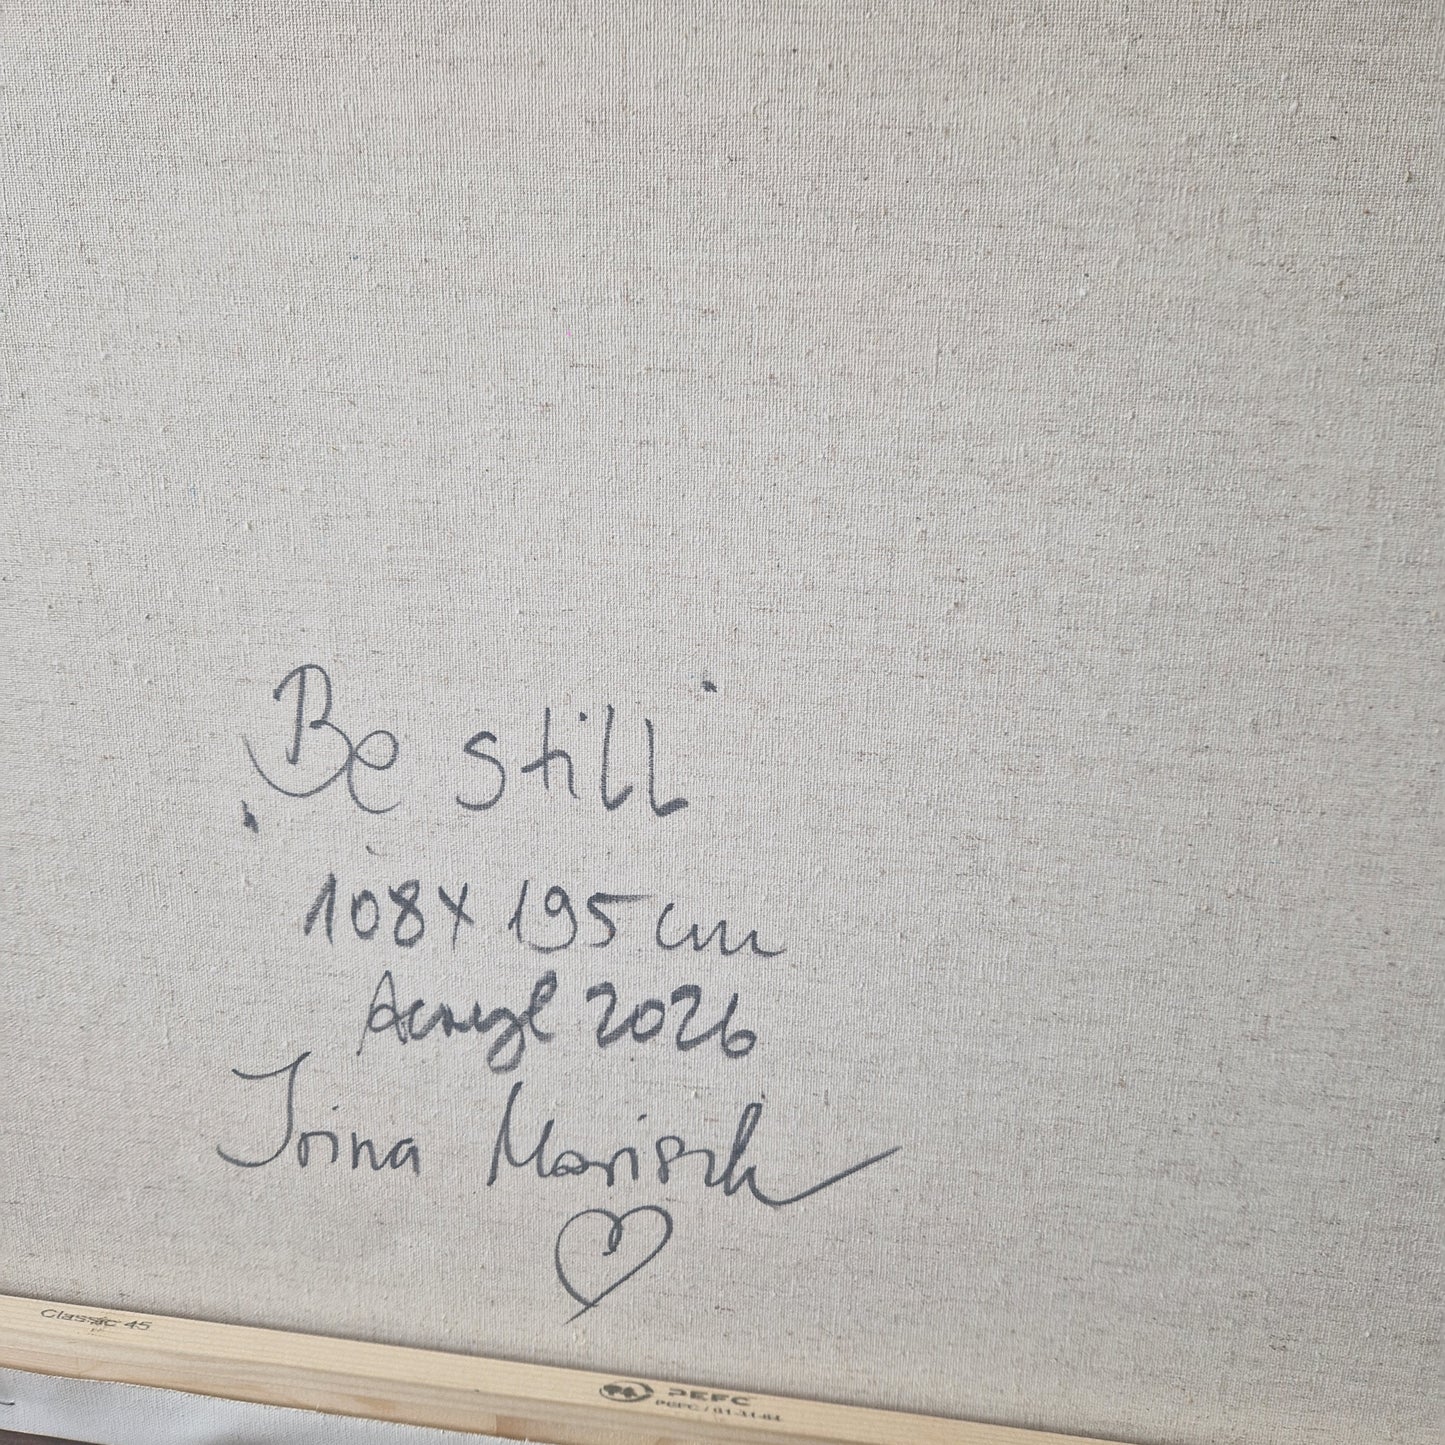 "Be still"
108x195 cm
Acryl 2026
Irina Marisch
Classic 45
PEFC
PEFC/